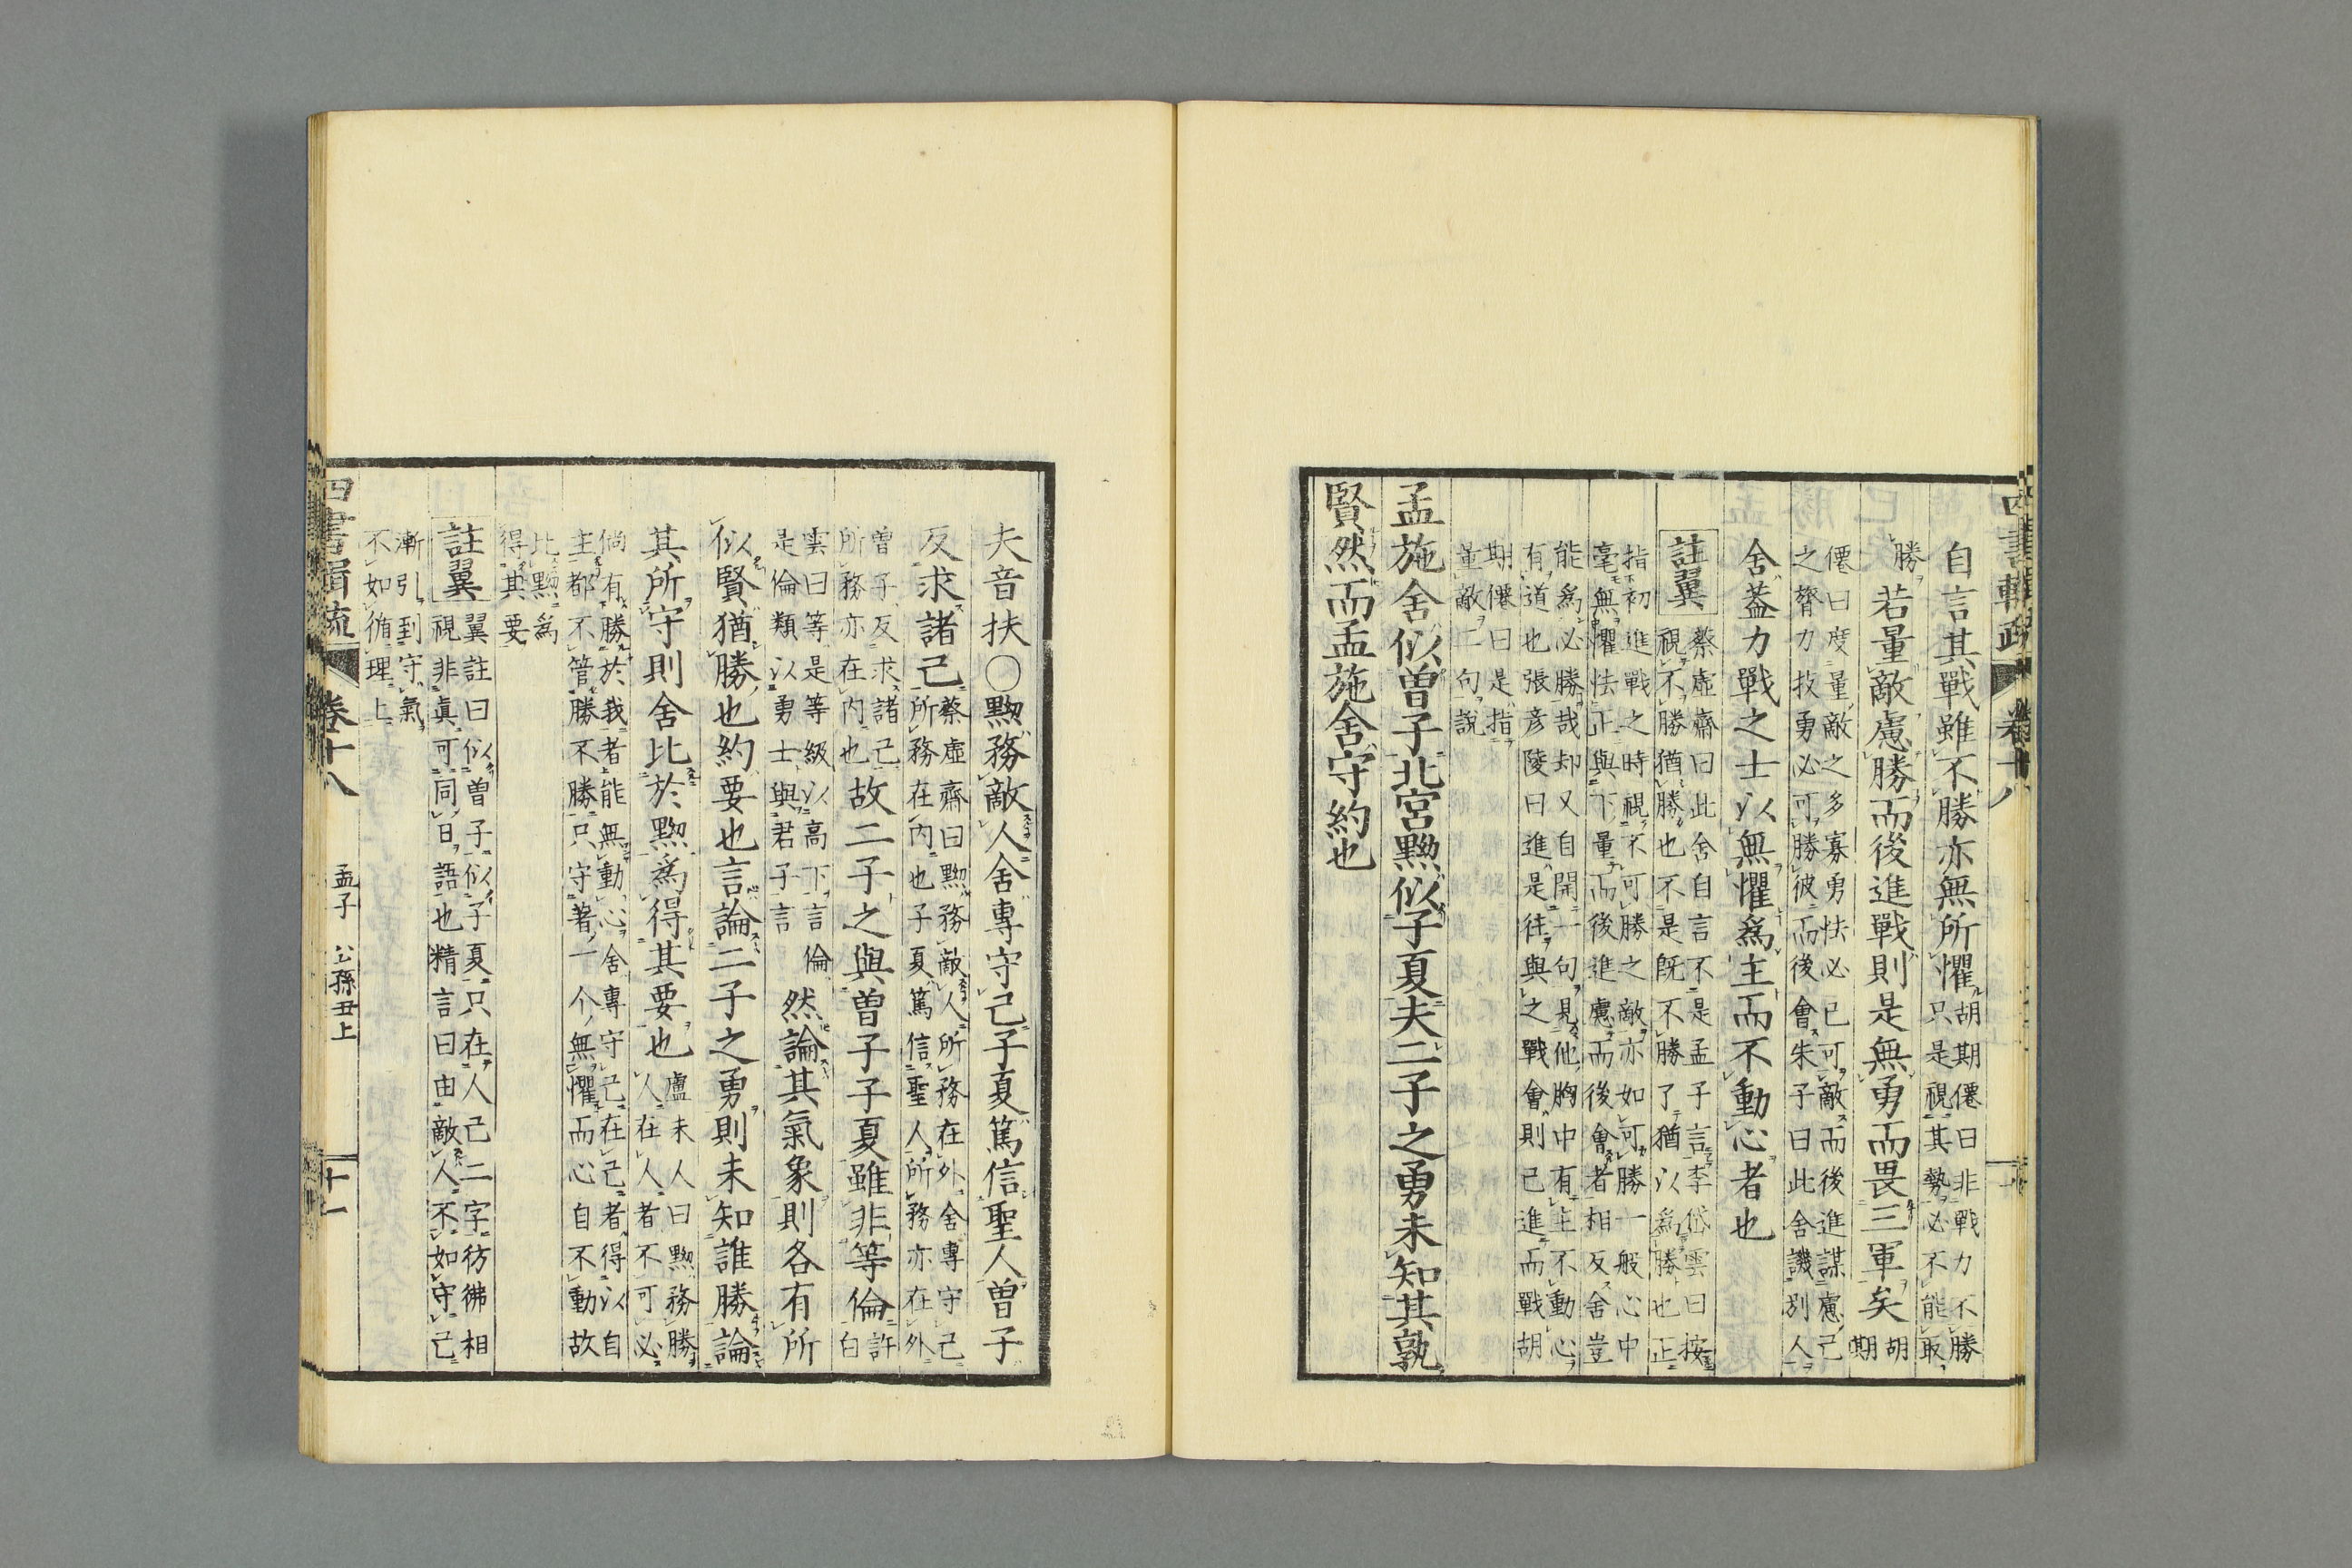 自言其戰雖不勝亦無所懼
胡期僊曰非戰力不勝
只是視其勢必不能取
勝
若量敵慮勝而後進戰則是無勇而畏三軍矣
胡
期
僊曰度量敵之多寡勇怯必已可敵而後進謀慮己
之膂力技勇必可勝彼而後會朱子曰此舍譏別人
舍蓋力戰之士以無懼爲主而不動心者也
註翼
蔡虛齋曰此舍自言不是孟子言李岱雲曰按
視不勝猶勝也不是旣不勝了猶以爲勝也正
指初進戰之時視不可勝之敵亦如可勝一般心中
毫無懼怯正與下量而後進慮而後會者相反舍豈
能爲必勝哉却又自開一句見他胸中有主不動心
有道也張彦陵曰進是往與之戰會則已進而戰胡
期僊曰是指
量敵二句說
孟施舍似曾子北宮黝似子夏夫二子之勇未知其孰
賢然而孟施舍守約也
四書輯疏
卷十八
夫音扶○黝務敵人舍專守己子夏篤信聖人曾子
反求諸己
蔡虛齋曰黝務敵人所務在外舍專守己
所務在內也子夏篤信聖人所務亦在外
曾子反求諸己
所務亦在内也
故二子之與曾子子夏雖非等倫
許
白
雲曰等是等級以高下言倫
是倫類以勇士與君子言
然論其氣象則各有所
似賢猶勝也約要也言論二子之勇則未知誰勝論
其所守則舍比於黝爲得其要也
盧未人曰黝務勝
人在人者不可必
倘有勝於我者能無動心舍專守己在己者得以自
主都不管勝不勝只守著一介無懼而心自不動故
比黝爲
得其要
註翼
翼註曰似曾子似子夏只在人己二字彷彿相
視非眞可同日語也精言曰由敵人不如守己
漸引到守氣
不如循理上
四書輯疏
卷十八
孟子
公孫丑上
十一